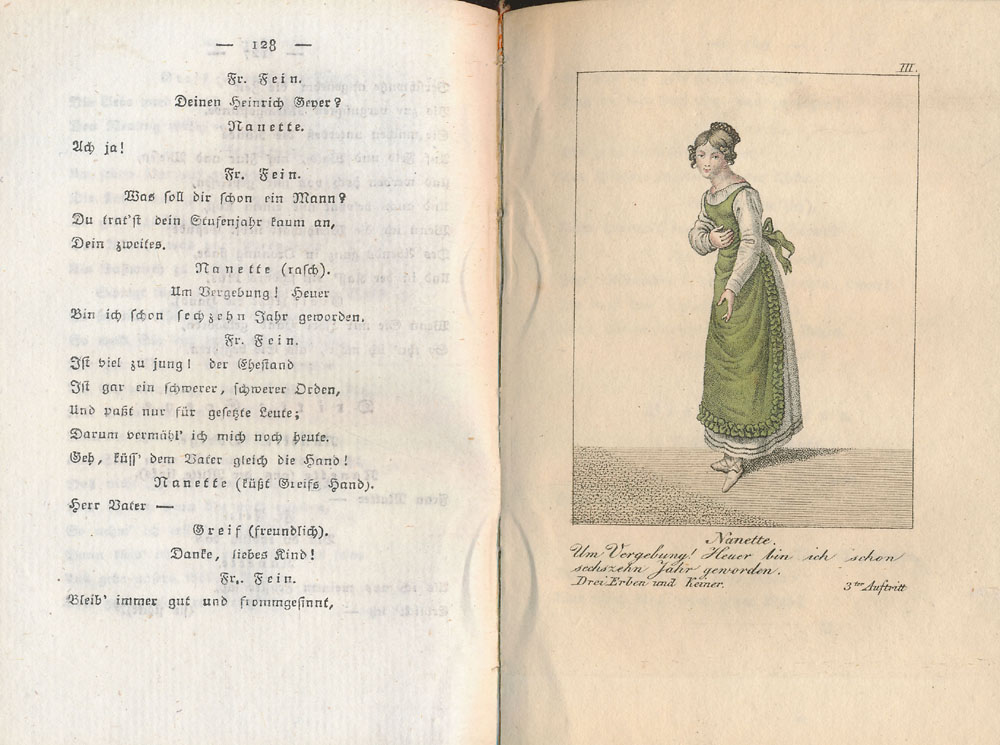 — 128 —
Fr. Fein.
Deinen Heinrich Geyer?
Nanette.
Ach ja!
Fr. Fein.
Was soll dir schon ein Mann?
Du trat'st dein Stufenjahr kaum an,
Dein zweites.
Nanette (rasch).
Um Vergebung! Heuer
Bin ich schon sechzehn Jahr geworden.
Fr. Fein.
Ist viel zu jung! der Ehestand
Ist gar ein schwerer, schwerer Orden,
Und paßt nur für gesetzte Leute;
Darum vermähl' ich mich noch heute.
Geh, küss' dem Vater gleich die Hand!
Nanette (küßt Greifs Hand).
Herr Vater —
Greif (freundlich).
Danke, liebes Kind!
Fr. Fein.
Bleib' immer gut und frommgesinnt,
III.
Nanette.
Um Vergebung! Heuer bin ich schon
sechszehn Jahr geworden.
Drei Erben und Keiner.
3ter Auftritt